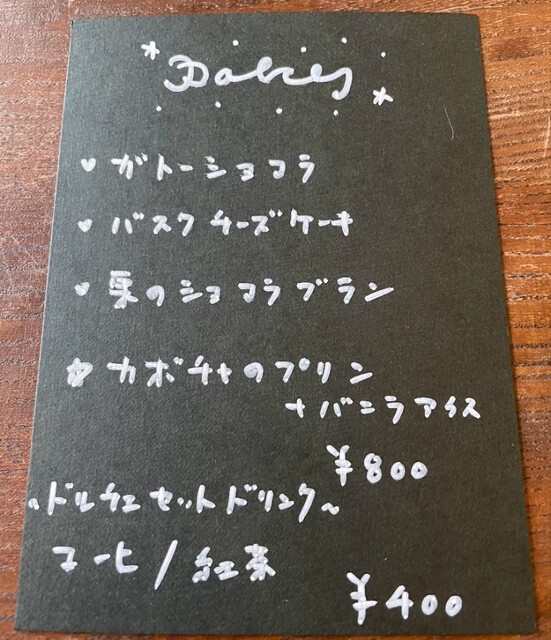 Dolces
ガトーショコラ
バスクチーズケーキ
栗のショコラブラン
カボチャのプリン
+バニラアイス
¥800
~ドルチェセットドリンク~
コーヒ/紅茶
¥400